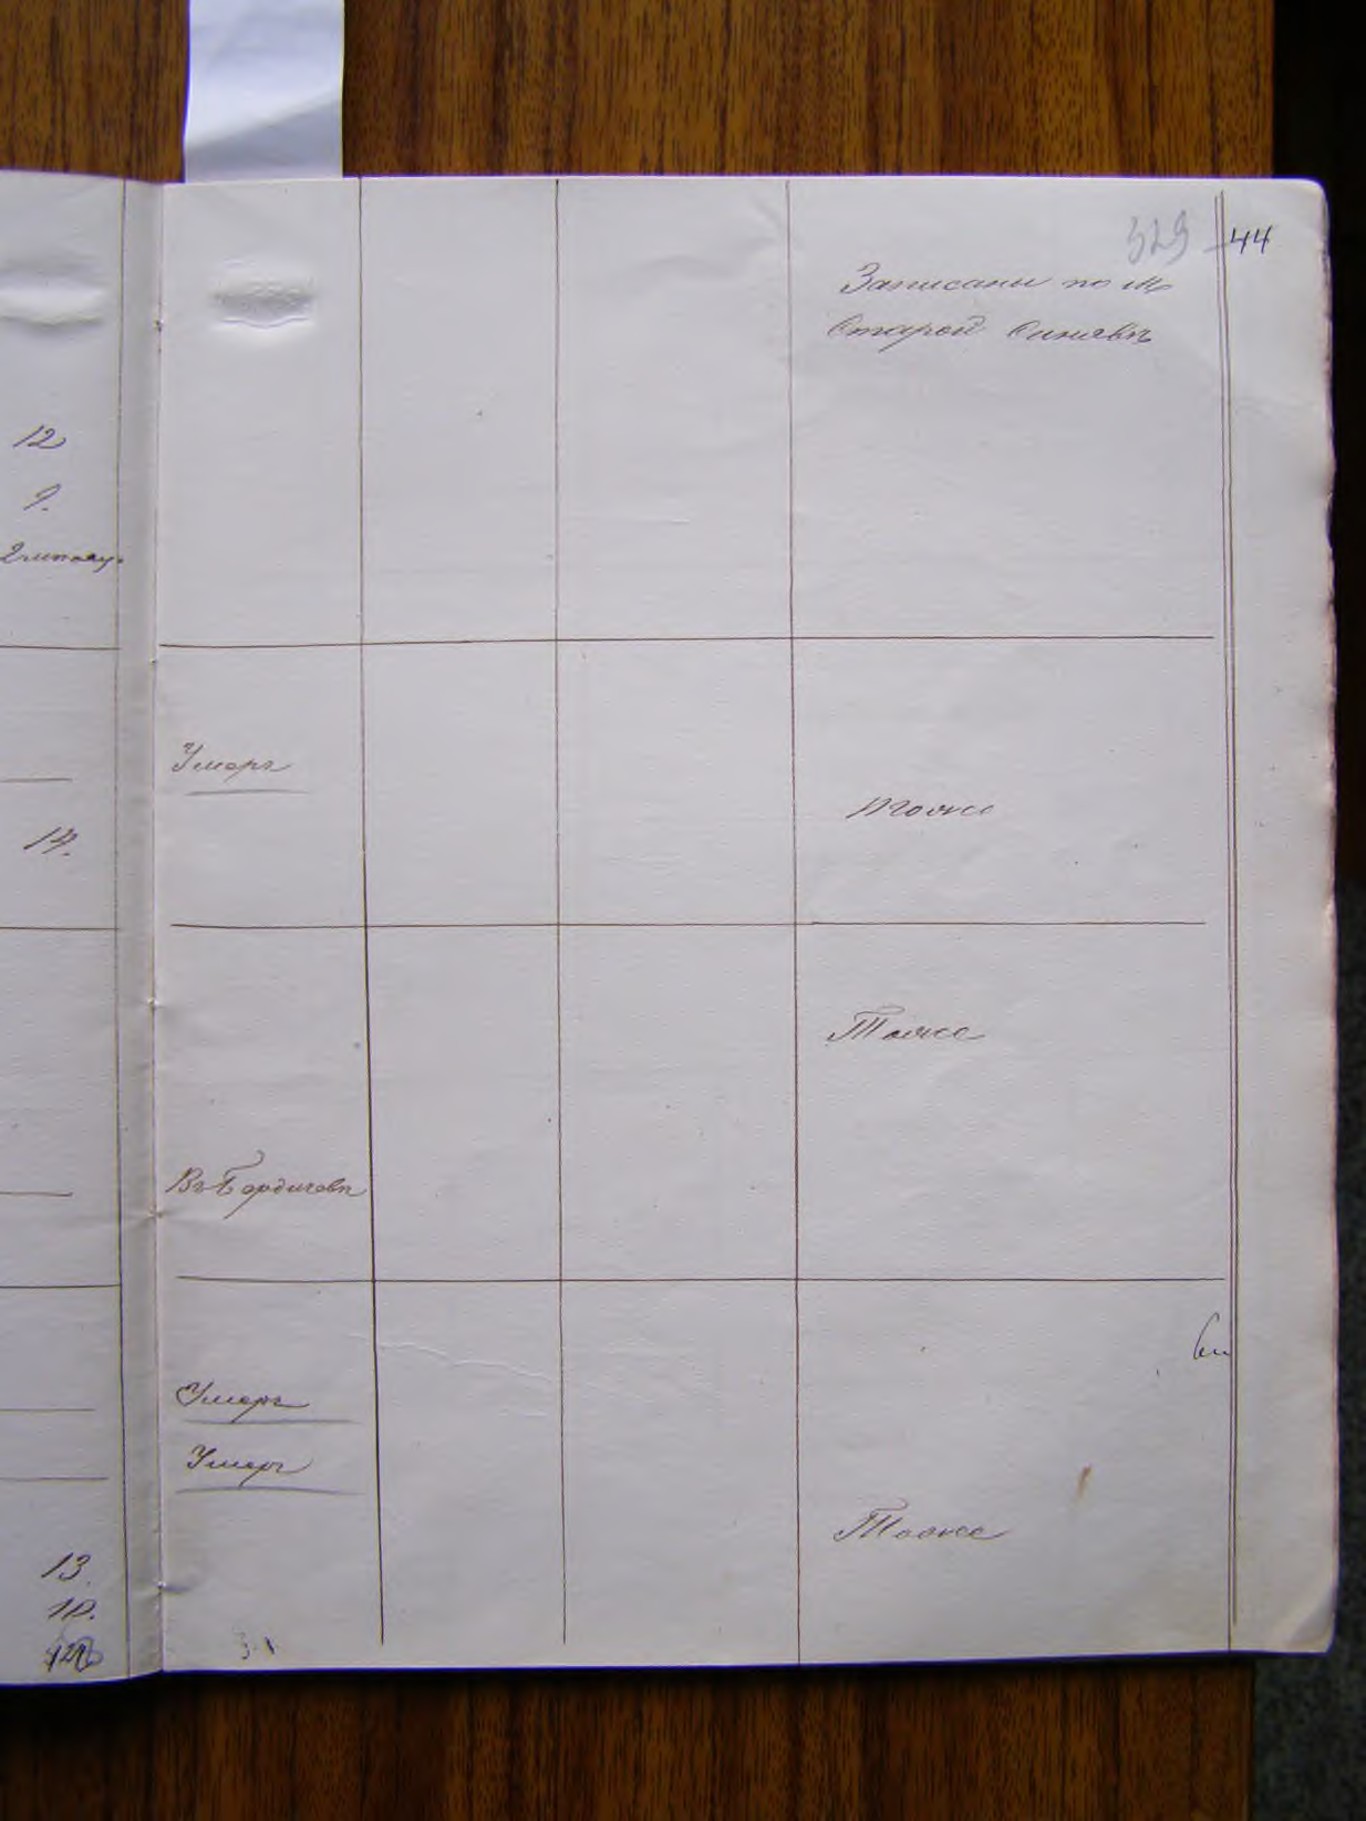 329 44
Записаны по м.
Старой Синявѣ
12
9.
Умеръ
Тоже
14.
Тоже
Въ Бердичевѣ
Умеръ
Умеръ
Тоже
13.
10.